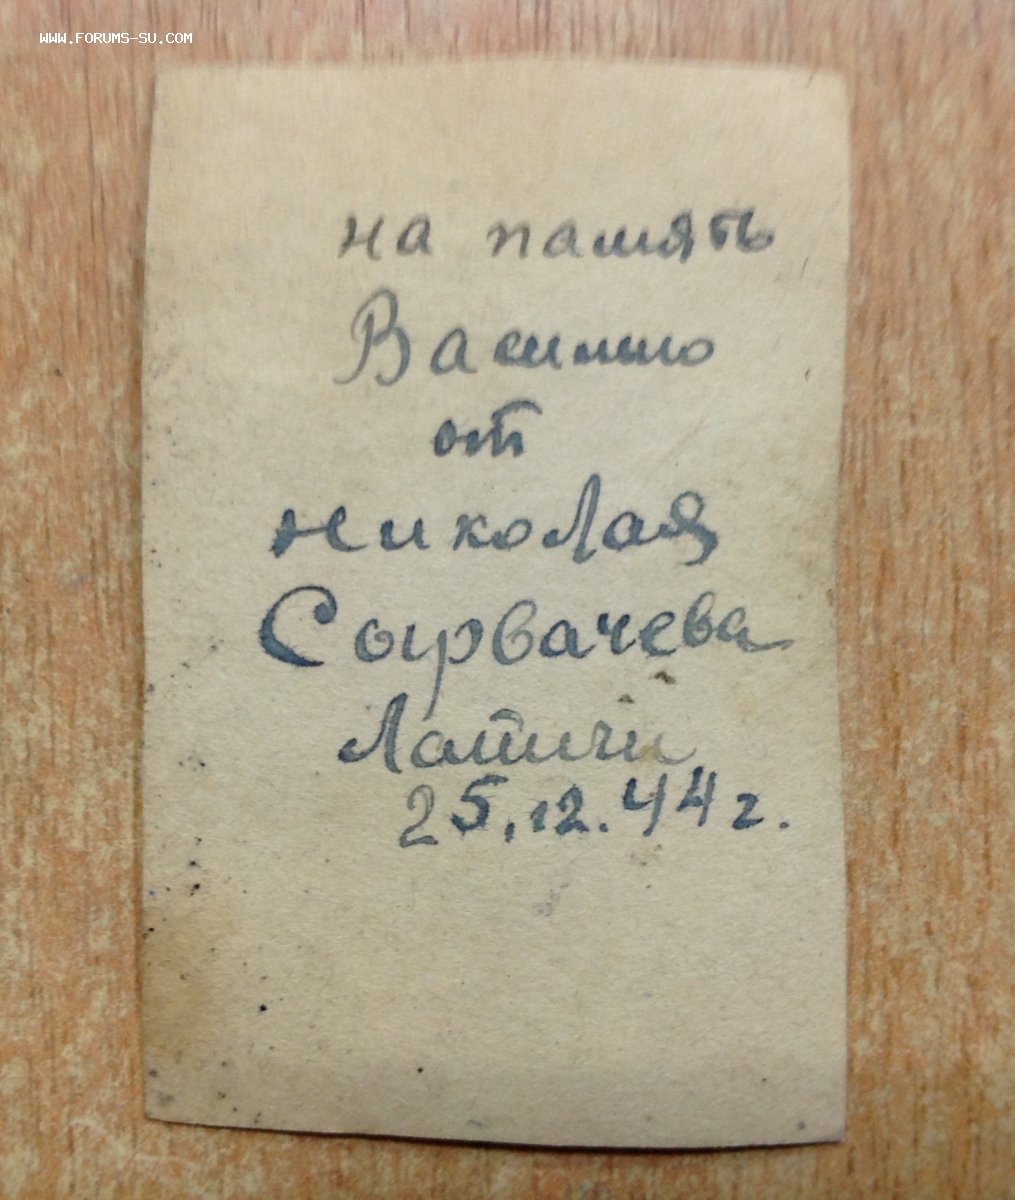 WWW.FORUMS-SU.COM
на память
Василию
от
Николая
Сырвачева
Латичи
25.12.44 г.